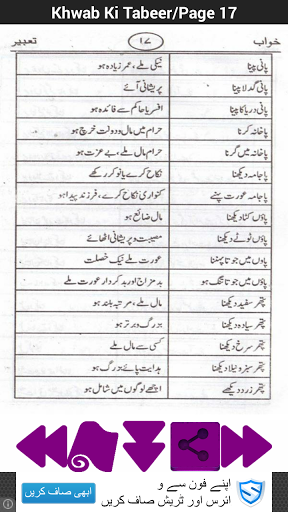 Khwab Ki Tabeer/Page 17
خواب ۱۷ تعبیر
پانی پینا نیکی ملے، عمر زیادہ ہو
پانی گدلا پینا پریشانی آئے
پانی دریا کا پینا افسر یا حاکم سے فائدہ ہو
پاخانہ کرنا حرام میں مال و دولت خرچ ہو
پاخانہ میں گرنا حرام مال ملے، بے عزت ہو
پاجامہ دیکھنا نکاح کرے یا نوکر رکھے
پاجامہ عورت پہنے کنواری نکاح کرے، فرزند پیدا ہو
پاؤں کٹا دیکھنا مال ضائع ہو
پاؤں ٹوٹے دیکھنا مصیبت و پریشانی اٹھائے
پاؤں میں جوتا پہننا عورت ملے نیک خصلت
پاؤں میں جوتا تنگ ہو بد مزاج اور بد کردار عورت ملے
پتھر سفید دیکھنا مال ملے، مرتبہ بلند ہو
پتھر سیاہ دیکھنا بزرگ و برتر ہو
پتھر سرخ دیکھنا کسی سے مال ملے
پتھر سبز و نیلا دیکھنا ہدایت پائے بزرگ ہو
پتھر زرد دیکھے اچھے لوگوں میں شامل ہو
اپنے فون سے و
ائرس اور ٹریش صاف کریں
ابھی صاف کریں